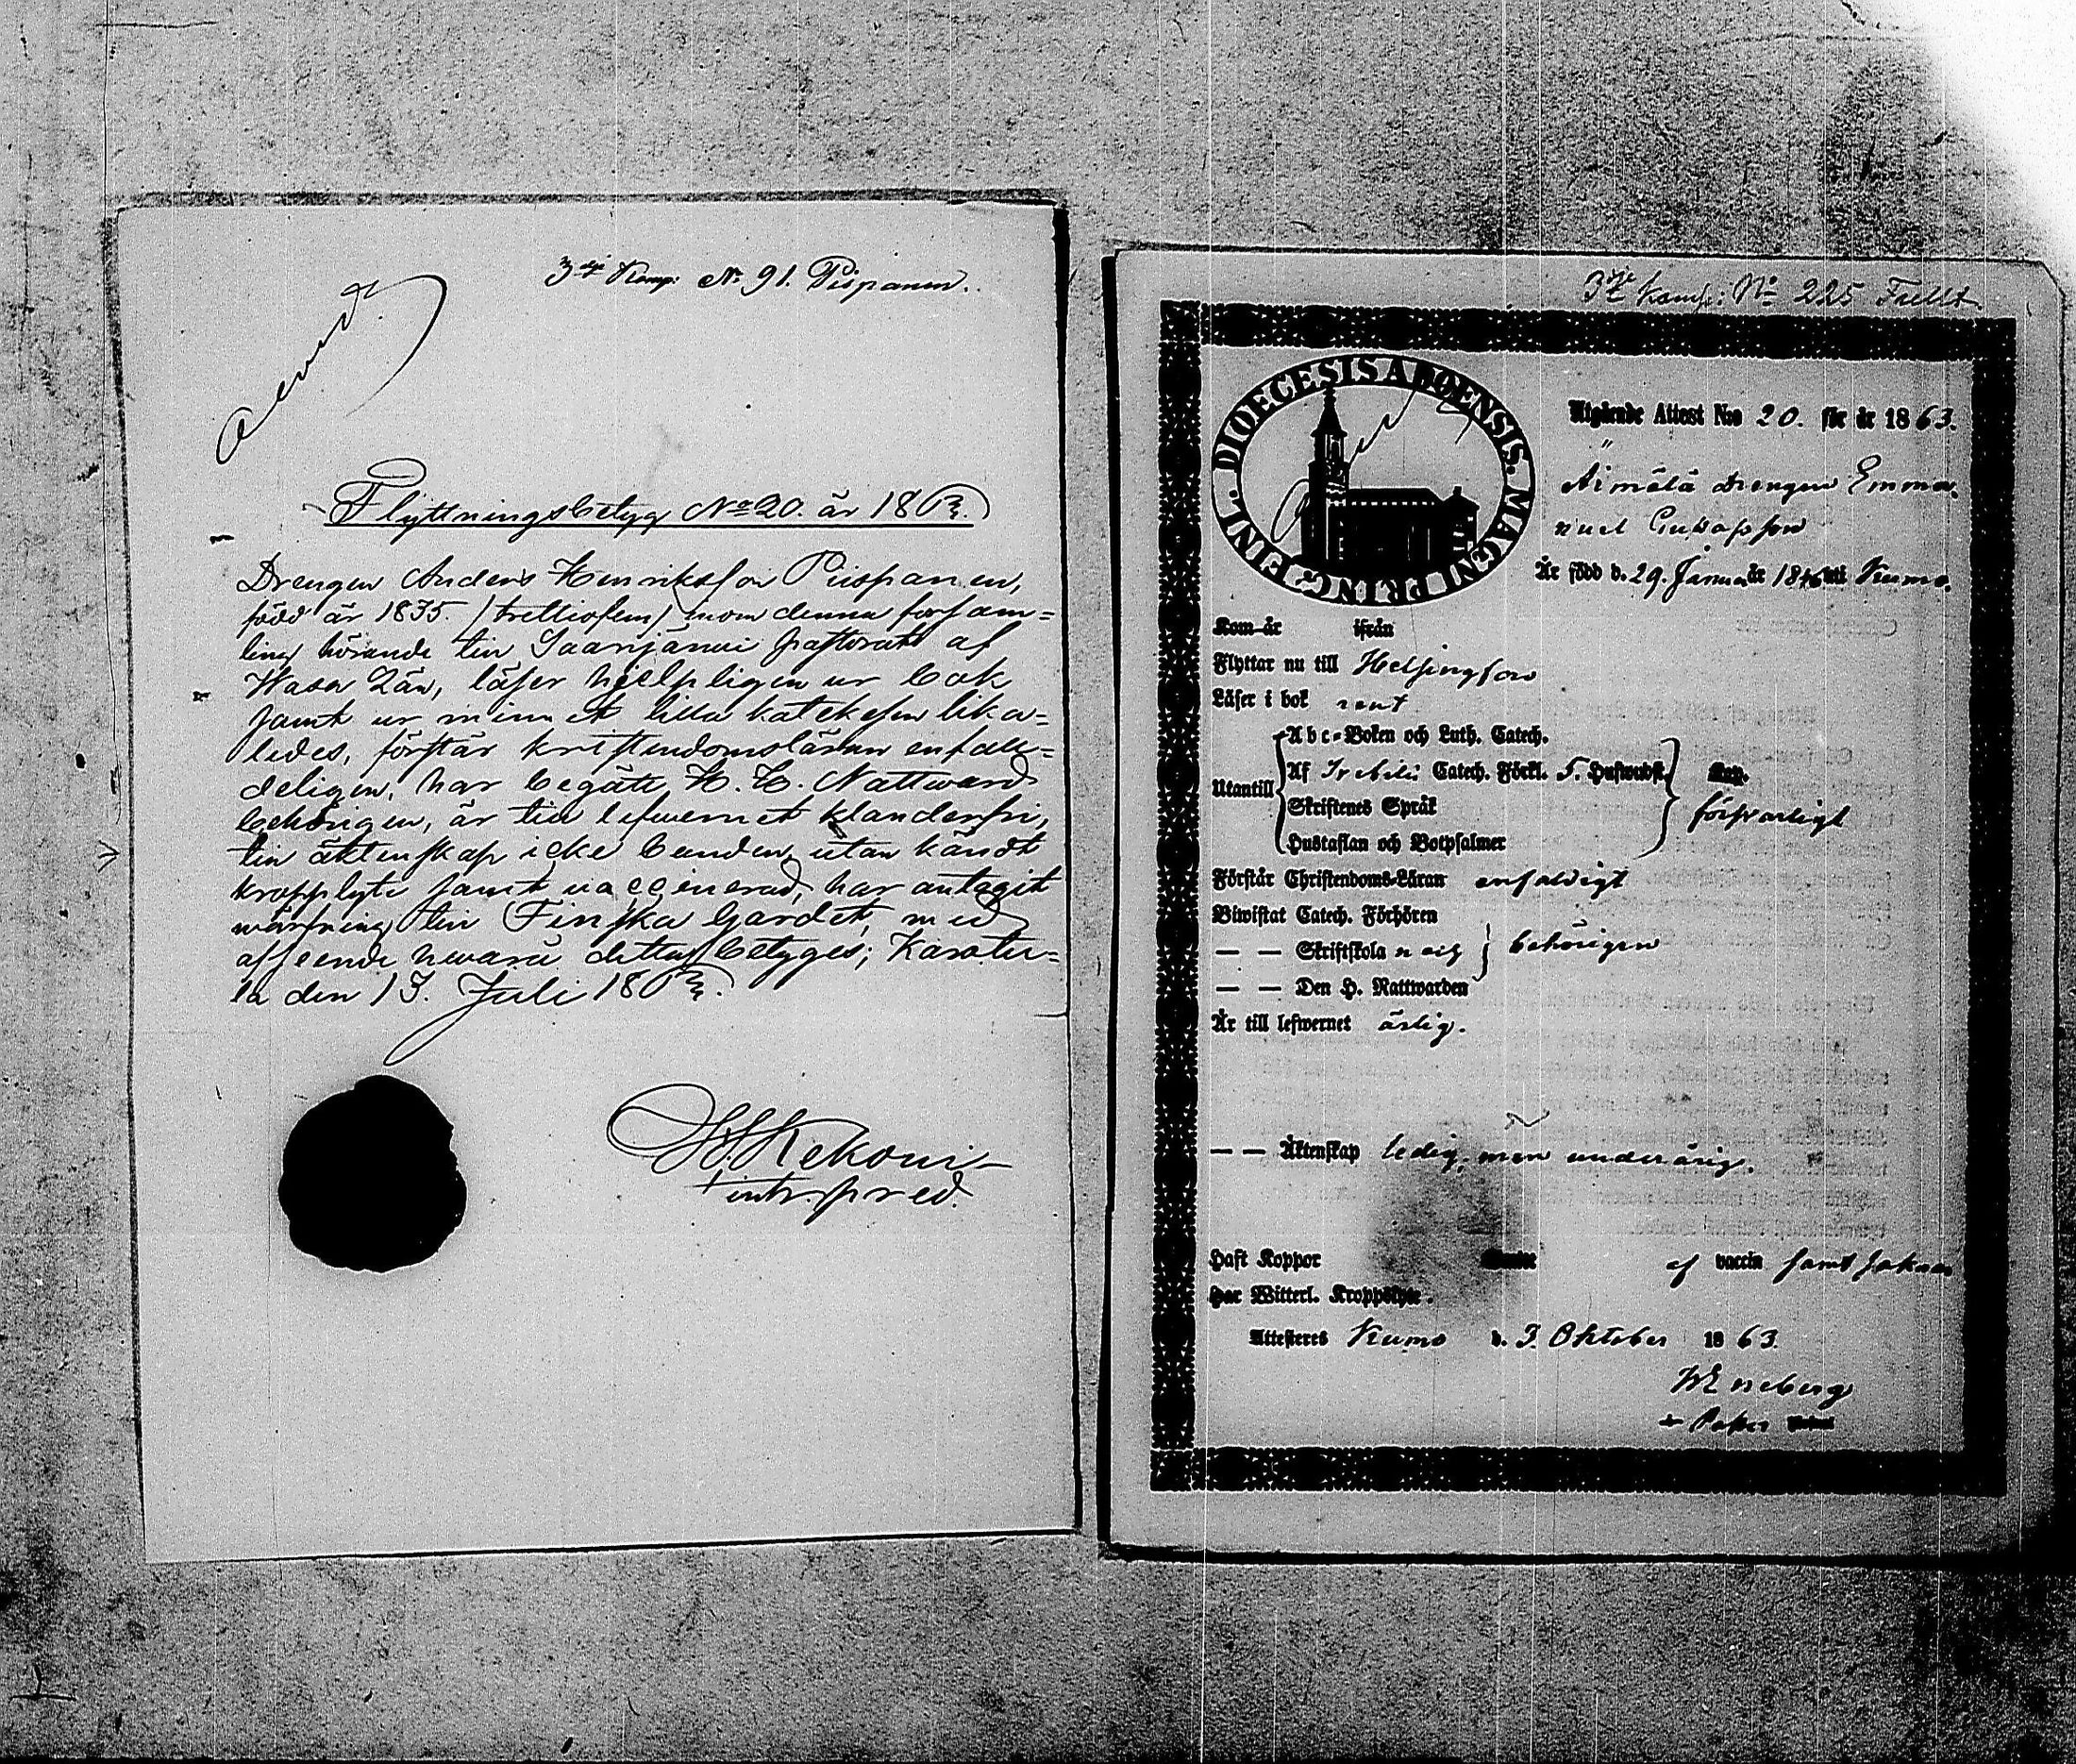 3dje Komp: No 91. Piispanen.
Flyttningsbetyg No 20. år 1863.
Drengen Anders Henriksson Piispanen,
född år 1835. /trettiofem/ inom denna försam=
ling hörande till Saarijärvi pastorat af
Wasa Län, läser hjelpligen ur bok
samt ur minnet lilla katekesen lika=
ledes, förstår kristendomsläran enfal=
deligen, har begått H. H. Nattward
behörigen, är till lefwernet klanderfri,
till äktenskap icke bunden, utan kändt
kroppslyte samt vaccinerad, har antagit
wärfning till Finska Gardet, med
afseende hwarå detta betygas; Karstu=
la den 13. Juli 1863.
Kekoni
intr. pred.
3dje Komp: No 225 Fullt
Utgående Attest N:o 20. för år 1863.
Äimälä Drengen Emma=
nuel Gustafsson
Är född d. 29. Januari 1846 uti Kumo.
Kom år ifrån
Flyttar nu till Helsingfors
Läser i bok rent
Abc-Boken och Luth. Catech.
Utantill Af Catech. Förkl. 5. Huswudst. Kap.
Skriftenes Språk försvarligt
Hustaflan och Botpsalmer
Förstår Christendoms-Läran enfaldigt
Biwistat Catech. Förhören
— — Skriftskola behörigen
— — Den H. Nattwarden
Är till lefwernet ärlig.
— — Äktenskap ledig, men underårig.
Haft Koppor af vaccin samt
Har Witterl. Kroppslyte.
Attesteres Kumo d. 3. Oktober 1863.
DIOECESIS ABOENSIS. MAGNI PRINC. FINL.